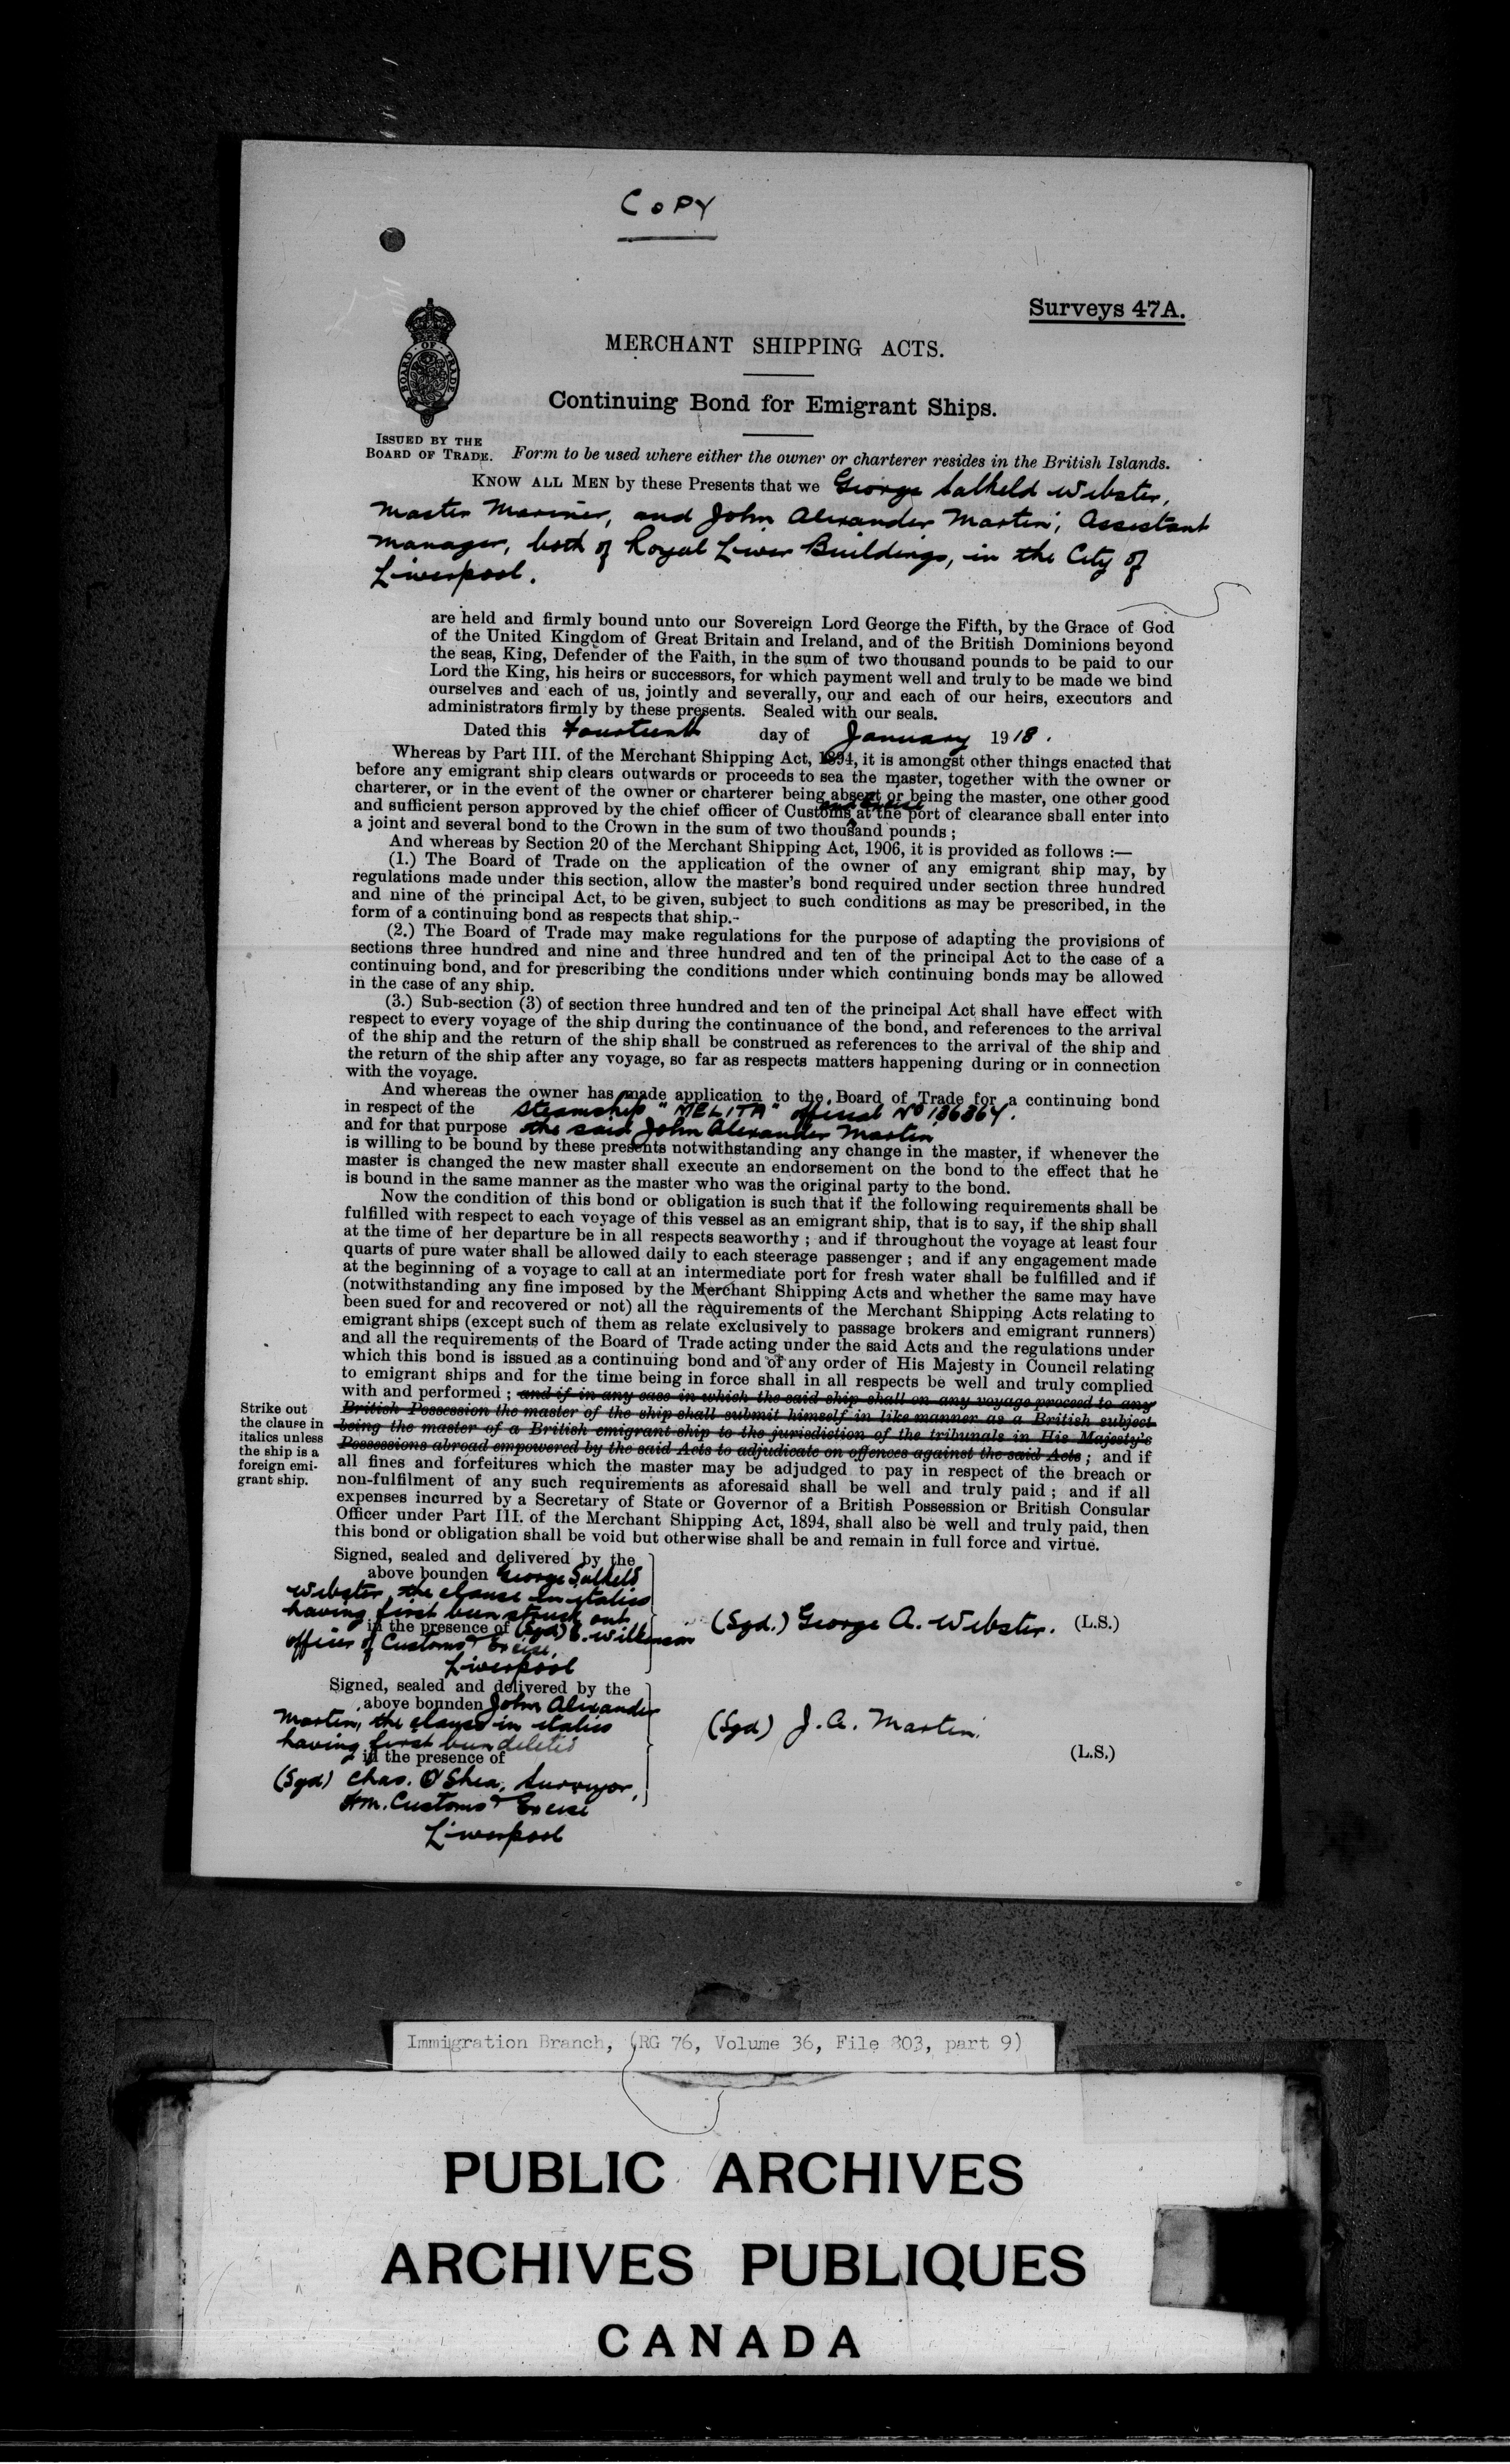 COPY
Surveys 47A.
MERCHANT SHIPPING ACTS.
BOARD OF TRADE
Continuing Bond for Emigrant Ships.
ISSUED BY THE
BOARD OF TRADE.
Form to be used where either the owner or charterer resides in the British Islands.
KNOW ALL MEN by these Presents that we George Salkeld Webster,
Master Mariner, and John Alexander Martin, Assistant
Manager, both of Royal Liver Buildings, in the City of
Liverpool.
are held and firmly bound unto our Sovereign Lord George the Fifth, by the Grace of God
of the United Kingdom of Great Britain and Ireland, and of the British Dominions beyond
the seas, King, Defender of the Faith, in the sum of two thousand pounds to be paid to our
Lord the King, his heirs or successors, for which payment well and truly to be made we bind
ourselves and each of us, jointly and severally, our and each of our heirs, executors and
administrators firmly by these presents. Sealed with our seals.
Dated this Fourteenth day of January 1918.
Whereas by Part III. of the Merchant Shipping Act, 1894, it is amongst other things enacted that
before any emigrant ship clears outwards or proceeds to sea the master, together with the owner or
charterer, or in the event of the owner or charterer being absent or being the master, one other good
and sufficient person approved by the chief officer of Customs and Excise at the port of clearance shall enter into
a joint and several bond to the Crown in the sum of two thousand pounds ;
And whereas by Section 20 of the Merchant Shipping Act, 1906, it is provided as follows :—
(1.) The Board of Trade on the application of the owner of any emigrant ship may, by
regulations made under this section, allow the master's bond required under section three hundred
and nine of the principal Act, to be given, subject to such conditions as may be prescribed, in the
form of a continuing bond as respects that ship.
(2.) The Board of Trade may make regulations for the purpose of adapting the provisions of
sections three hundred and nine and three hundred and ten of the principal Act to the case of a
continuing bond, and for prescribing the conditions under which continuing bonds may be allowed
in the case of any ship.
(3.) Sub-section (3) of section three hundred and ten of the principal Act shall have effect with
respect to every voyage of the ship during the continuance of the bond, and references to the arrival
of the ship and the return of the ship shall be construed as references to the arrival of the ship and
the return of the ship after any voyage, so far as respects matters happening during or in connection
with the voyage.
And whereas the owner has made application to the Board of Trade for a continuing bond
in respect of the Steamship "MELITA" official No 136367.
and for that purpose the said John Alexander Martin
is willing to be bound by these presents notwithstanding any change in the master, if whenever the
master is changed the new master shall execute an endorsement on the bond to the effect that he
is bound in the same manner as the master who was the original party to the bond.
Now the condition of this bond or obligation is such that if the following requirements shall be
fulfilled with respect to each voyage of this vessel as an emigrant ship, that is to say, if the ship shall
at the time of her departure be in all respects seaworthy ; and if throughout the voyage at least four
quarts of pure water shall be allowed daily to each steerage passenger ; and if any engagement made
at the beginning of a voyage to call at an intermediate port for fresh water shall be fulfilled and if
(notwithstanding any fine imposed by the Merchant Shipping Acts and whether the same may have
been sued for and recovered or not) all the requirements of the Merchant Shipping Acts relating to
emigrant ships (except such of them as relate exclusively to passage brokers and emigrant runners)
and all the requirements of the Board of Trade acting under the said Acts and the regulations under
which this bond is issued as a continuing bond and of any order of His Majesty in Council relating
to emigrant ships and for the time being in force shall in all respects be well and truly complied
with and performed ; and if in any case in which the said ship shall on any voyage proceed to any
British Possession the master of the ship shall submit himself in like manner as a British subject
being the master of a British emigrant ship to the jurisdiction of the tribunals in His Majesty's
Possessions abroad empowered by the said Acts to adjudicate on offences against the said Acts ; and if
all fines and forfeitures which the master may be adjudged to pay in respect of the breach or
non-fulfilment of any such requirements as aforesaid shall be well and truly paid ; and if all
expenses incurred by a Secretary of State or Governor of a British Possession or British Consular
Officer under Part III. of the Merchant Shipping Act, 1894, shall also be well and truly paid, then
this bond or obligation shall be void but otherwise shall be and remain in full force and virtue.
Strike out
the clause in
italics unless
the ship is a
foreign emi-
grant ship.
Signed, sealed and delivered by the
above bounden George Salkeld
Webster, the clause in italics
having first been struck out
in the presence of (Sgd) C. Wilkinson
officer of Customs & Excise,
Liverpool
(Sgd.) George A. Webster. (L.S.)
Signed, sealed and delivered by the
above bounden John Alexander
Martin, the clause in italics
having first been deleted
in the presence of
(Sgd) Chas. O'Shea, Surveyor,
HM. Customs & Excise
Liverpool
(Sgd) J. A. Martin.
(L.S.)
Immigration Branch, (RG 76, Volume 36, File 803, part 9)
PUBLIC ARCHIVES
ARCHIVES PUBLIQUES
CANADA